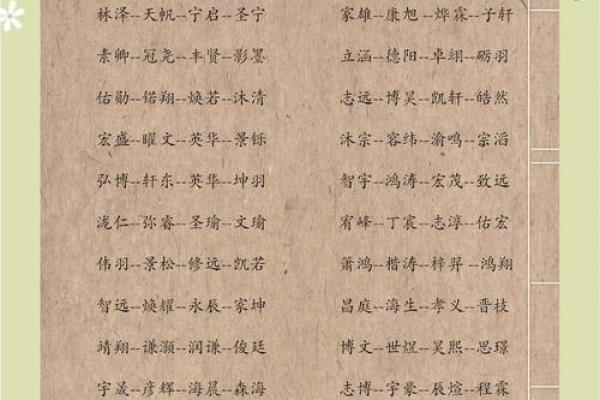 林泽--天帆--宁启--圣宁
家雄--康旭--烨霖--子轩
素卿--冠尧--丰贤--影墨
立涵--德阳--卓翊--砺羽
佑勋--锘翔--焕若--沐清
志远--博昊--凯轩--皓然
宏盛--曜文--英华--景铄
沐宗--容纬--渝鸣--宗滔
弘博--轩东--英华--坤羽
智宇--鸿涛--宏茂--致远
泷仁--弥睿--圣瑜--文瑜
宥峰--丁宸--志淳--佑宏
伟羽--景松--修远--凯若
箫鸿--楷涛--梓羿--鸿翔
智远--焕耀--永辰--家坤
昌庭--海生--孝义--晋枝
靖翔--谦灏--润谦--俊廷
博文--世煜--昊熙--思璟
宇晟--彦辉--海晨--森海
志博--宇豪--辰煊--程霖